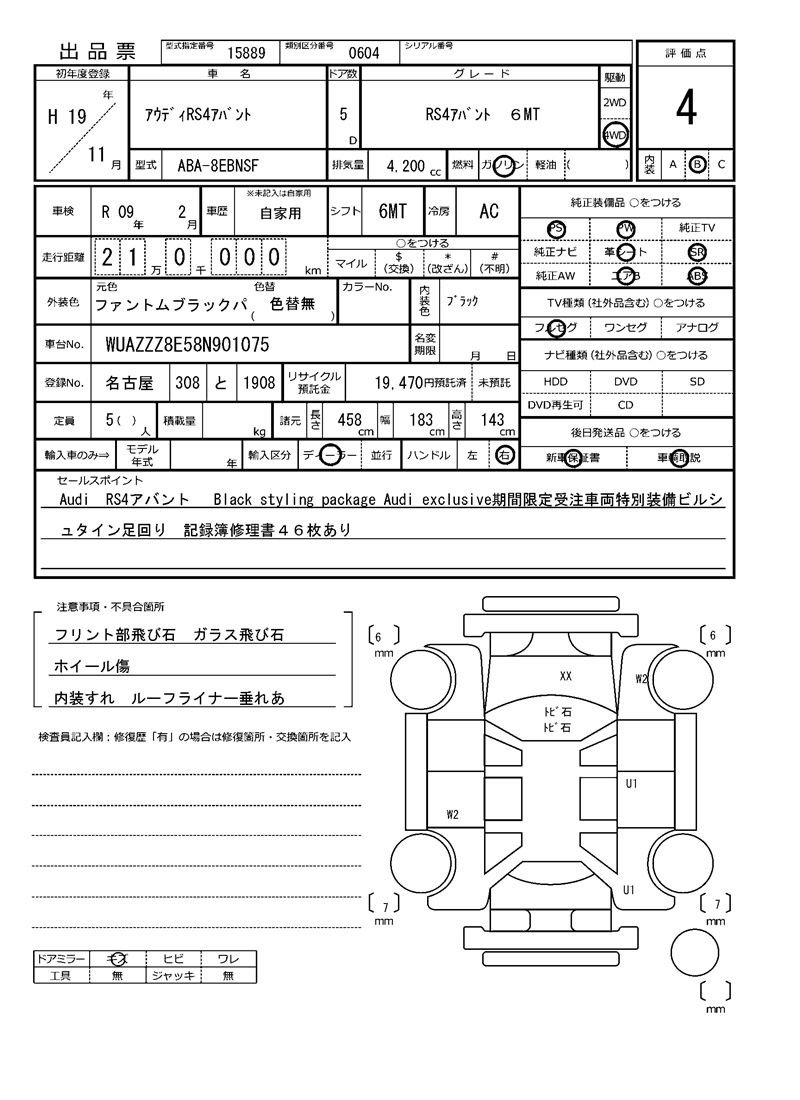 出品票 型式指定番号 15889 類別区分番号 0604 シリアル番号
評価点
初年度登録 車名 ドア数 グレード 駆動
H 19 年 11 月
ｱｳﾃﾞｨRS4ｱﾊﾞﾝﾄ
5 D
RS4ｱﾊﾞﾝﾄ 6MT
2WD
4WD
4
型式 ABA-8EBNSF 排気量 4,200 cc 燃料 ガソリン 軽油 ( )
内装 A B C
車検 R 09 年 2 月 車歴 ※未記入は自家用 自家用 シフト 6MT 冷房 AC
走行距離 21 万 0 千 000 km
○をつける
マイル $(交換) *(改ざん) #(不明)
外装色 元色 ファントムブラックパ 色替 ( 色替無 ) カラーNo. 内装色 ﾌﾞﾗｯｸ
車台No. WUAZZZ8E58N901075 名変期限 月 日
登録No. 名古屋 308 と 1908 リサイクル預託金 19,470円預託済 未預託
定員 5( )人 積載量 kg 諸元 長さ 458 cm 幅 183 cm 高さ 143 cm
輸入車のみ⇒ モデル年式 年 輸入区分 ディーラー 並行 ハンドル 左 右
純正装備品 ○をつける
PS PW 純正TV
純正ナビ 革シート SR
純正AW エアB ABS
TV種類(社外品含む) ○をつける
フルセグ ワンセグ アナログ
ナビ種類(社外品含む) ○をつける
HDD DVD SD
DVD再生可 CD
後日発送品 ○をつける
新車保証書 車輌取説
セールスポイント
Audi RS4アバント Black styling package Audi exclusive期間限定受注車両特別装備ビルシ
ュタイン足回り 記録簿修理書４６枚あり
注意事項・不具合箇所
フリント部飛び石 ガラス飛び石
ホイール傷
内装すれ ルーフライナー垂れあ
検査員記入欄：修復歴「有」の場合は修復箇所・交換箇所を記入
〔 6 〕mm
〔 6 〕mm
XX
W2
ﾄﾋﾞ石
ﾄﾋﾞ石
U1
W2
U1
〔 7 〕mm
〔 7 〕mm
〔 〕mm
ドアミラー キズ ヒビ ワレ
工具 無 ジャッキ 無